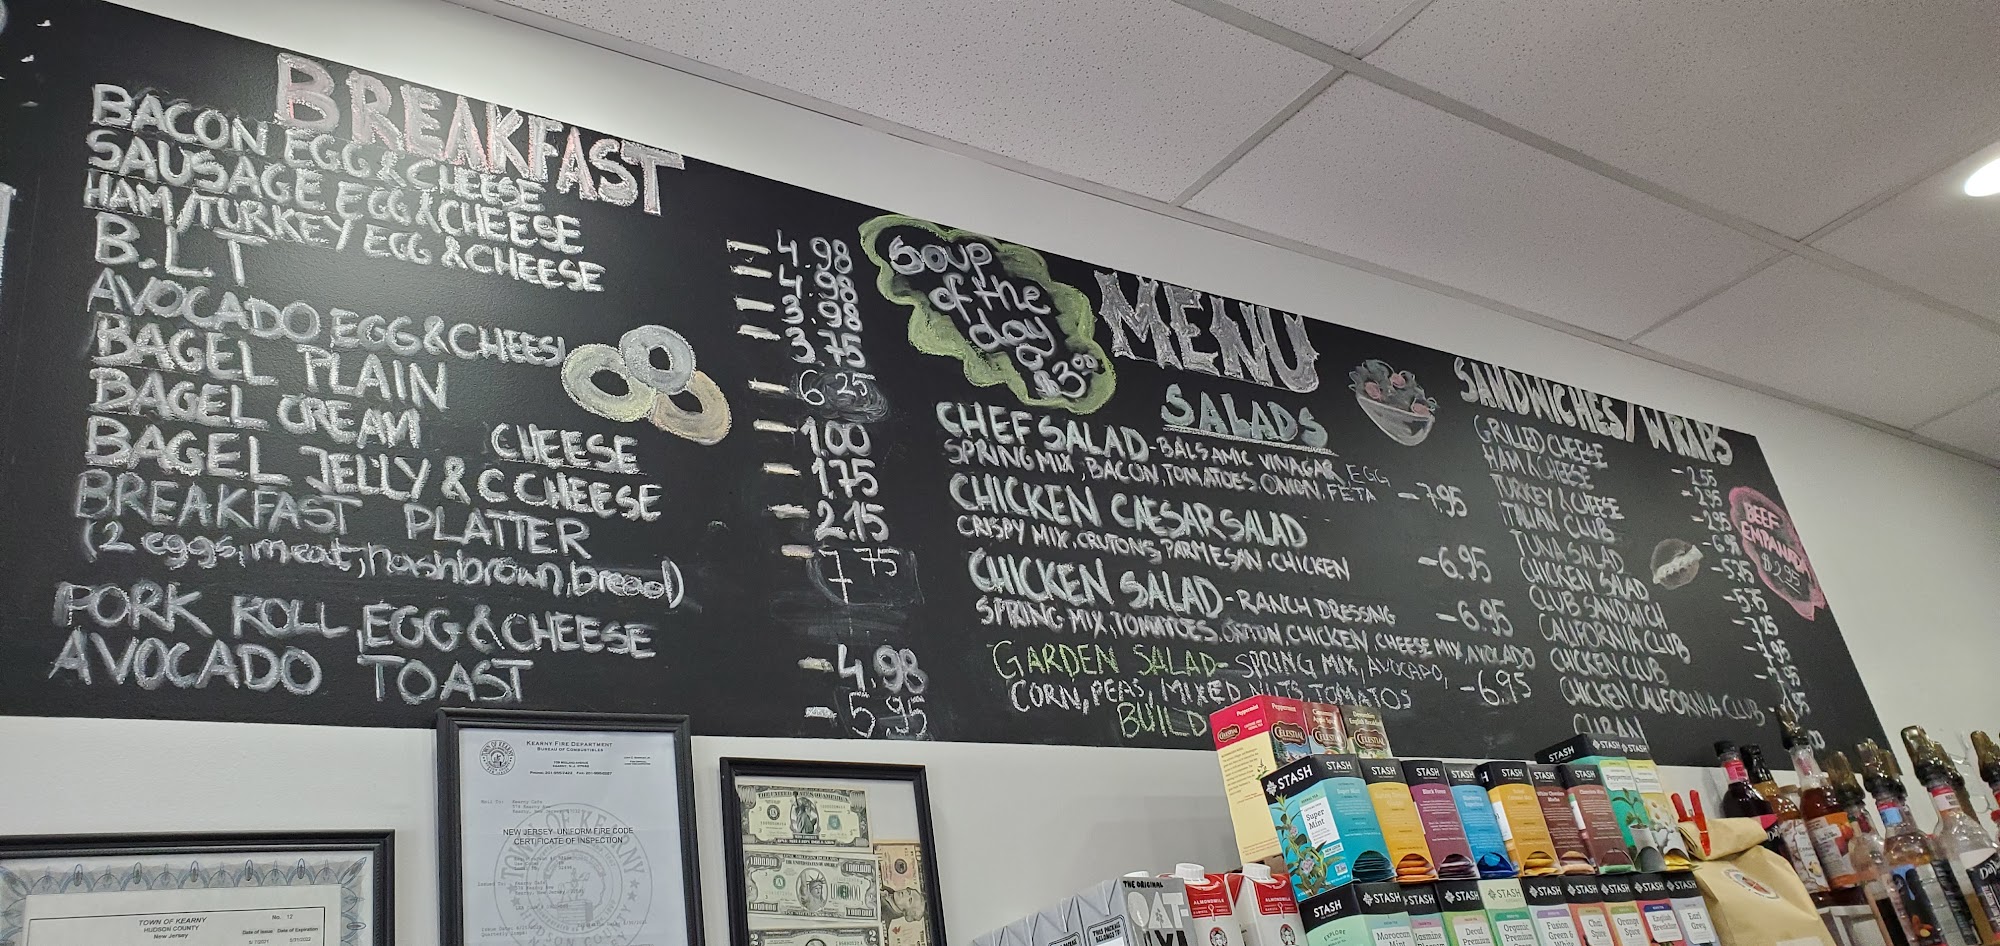 BREAKFAST
BACON EGG & CHEESE - 4.98
SAUSAGE EGG & CHEESE - 4.98
HAM/TURKEY EGG & CHEESE - 3.98
B.L T - 3.75
AVOCADO EGG & CHEES - 6 25
BAGEL PLAIN - 1.00
BAGEL CREAM CHEESE - 1.75
BAGEL JELLY & C CHEESE - 2.15
BREAKFAST PLATTER - 7 75
(2 eggs, meat, hashbrown, bread)
PORK ROLL EGG & CHEESE - 4.98
AVOCADO TOAST - 5.95
Soup
of the
day
$3.00
MENU
SALADS
CHEF SALAD - BALSAMIC VINAGAR, EGG,
SPRING MIX, BACON, TOMATOES. ONION. FETA - 7.95
CHICKEN CAESAR SALAD
CRISPY MIX, CRUTONS, PARMESAN. CHICKEN - 6.95
CHICKEN SALAD - RANCH DRESSING - 6.95
SPRING MIX, TOMATOES, ONION, CHICKEN, CHEESE MIX, AVOCADO
GARDEN SALAD - SPRING MIX, AVOCADO,
CORN, PEAS, MIXED NUTS, TOMATOS - 6.95
BUILD
SANDWICHES/WRAPS
GRILLED CHEESE - 2.55
HAM & CHEESE - 2.95
TURKEY & CHEESE - 2.95
ITALIAN CLUB
TUNA SALAD
CHICKEN SALAD
CLUB SANDWICH
CALIFORNIA CLUB
CHICKEN CLUB
CHICKEN CALIFORNIA CLUB
CUBAN
BEEF
EMPANADA
$2.95
KEARNY FIRE DEPARTMENT
BUREAU OF COMBUSTIBLES
NEW JERSEY UNIFORM FIRE CODE
CERTIFICATE OF INSPECTION
TOWN OF KEARNY
HUDSON COUNTY
New Jersey
No. 12
Date of Issue
Date of Expiration
THE ORIGINAL
OAT-
ALMONDMILK
Peppermint
CELESTIAL
CELESTIAL
CELESTIAL
STASH
Super
Mint
STASH
STASH
STASH
STASH
STASH
STASH
STASH
Moroccan
Mint
Decaf
Premium
Organic
Premium
Fusion
Green &
White
Chai
Spice
Orange
Spice
English
Breakfast
Earl
Grey